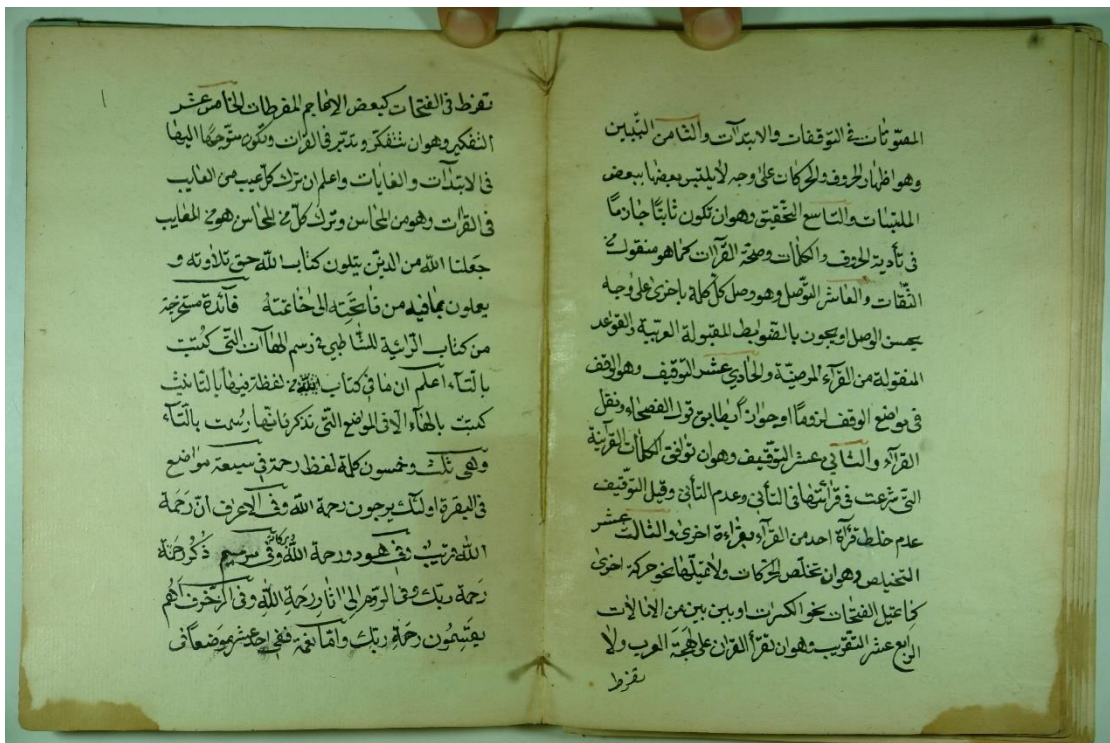 المفتوتات في التوقفات والابتدآت والثامن التبيين
وهو اظهار الحروف والحركات على وجه لا يلتبس بعضها ببعض
الملتبسات والتاسع التحقيق وهو ان تكون ثابتًا جازمًا
فى تأدية الحروف والكلمات وصحة القرآات كما هو منقول من
الثقات والعاشر التوصل وهو وصل كل كلمة باخرى على وجه
يحسن الوصل او يجون بالضوابط المقبولة العربية والقواعد
المنقولة من القرآء المرضيّة والحادى عشر التوقيف وهو الوقف
فى مواضع الوقف لزومًا او جوازًا يطابق قول الفصحاء ونقل
القرآء والثانى عشر التوقيف وهو ان توافق الكلمات القرآنية
التى شرعت فى قرائتها فى التأنى وعدم التأنى وقيل التوقيف
عدم خلط قرآة احد من القرآء بقراءة اخرى والثالث عشر
التخليص وهو ان تخلص الحركات ولا تميلها نحو حركة اخرى
كما تميل الفتحات نحو الكسرات او بين بين من الامالات
الرابع عشر التقريب وهو ان تقرأ القرآن على لهجة العرب ولا
تفرط
تفرط فى الفتحات كبعض الاعاجم المفرطات الخامس عشر
التفكير وهو ان تتفكر وتدبّر فى القرآن وتكون متوجهًا اليها
فى الابتدآت والغايات واعلم ان ترك كل عيب من المعايب
فى القرات وهو من المحاسن وترك كل من المحاسن هو من المعايب
جعلنا الله من الذين يتلون كتاب الله حق تلاوته و
يعملون بما فيه من فاتحته الى خاتمته فآئدة مستخرجة
من كتاب الرائية للشاطبى فى رسم الهاآت التى كتبت
بالتآء اعلم ان ما فى كتاب الله من لفظة فيها بالتانيث
كتبت بالهآء الا فى المواضع التى نذكرها فانها رسمت بالتآء
وهى ثلث وخمسون كلمة لفظ رحمة فى سبعة مواضع
فى البقرة اولئك يرجون رحمة الله وفى الاعراف ان رحمة
الله قريب وفى هود رحمة الله وبركاته وفى مريم ذكر رحمة
رحمة ربك وفى الروم الى اثار رحمة الله وفى الزخرف اهم
يقسمون رحمة ربك وامّا نعمة ففى احد عشر موضعًا فى